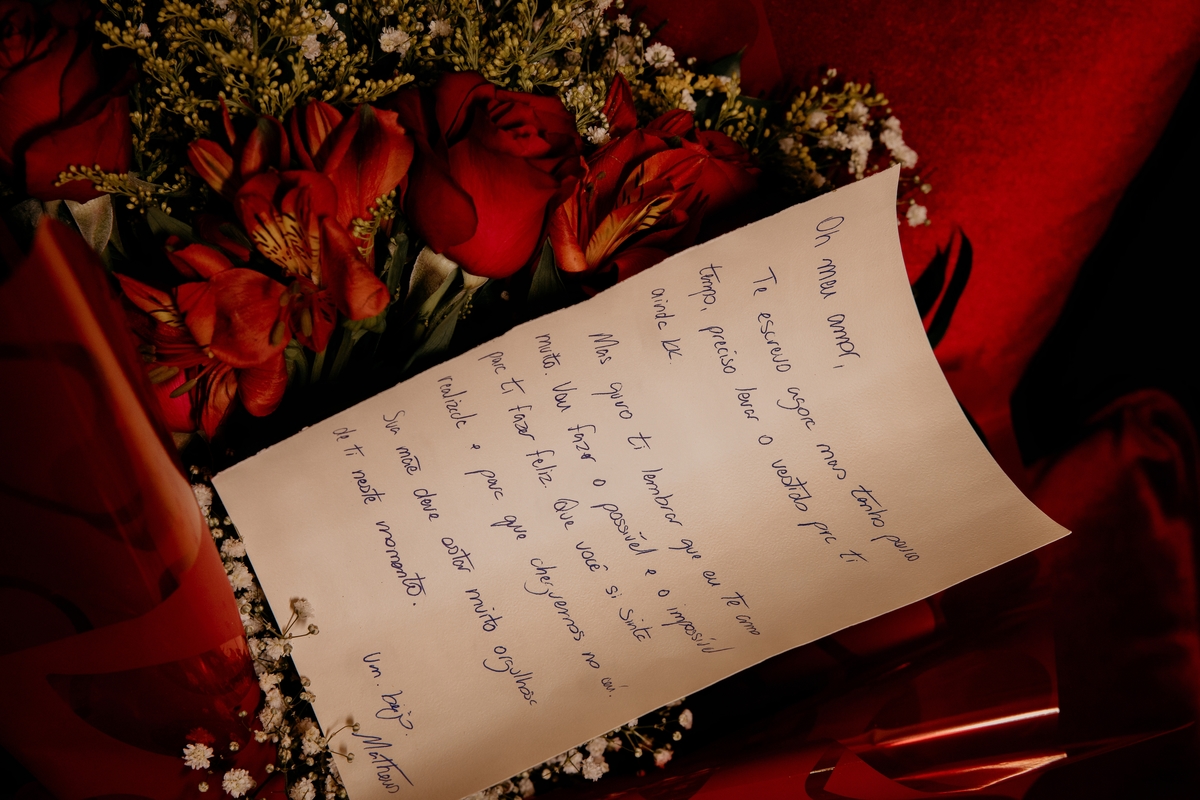 Oh meu amor,
Te escrevo agora mas tenho pouco
tempo, preciso levar o vestido pra ti
ainda kk.
Mas quro ti lembrar que eu te amo
muito. Vou fazer o possível e o impossível
para ti fazer feliz. Que você si sinta
realizada e para que cheguemos no céu.
Sua mãe deve estar muito orgulhosa
de ti neste momento.
Um beijo.
Matheus